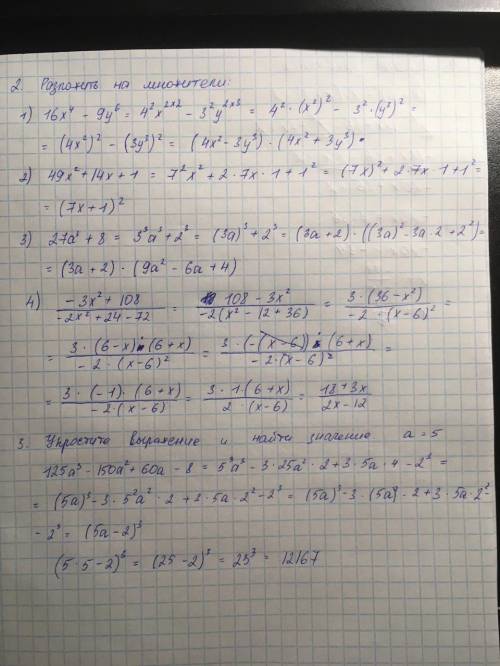 2. Разложить на множители:
1) 16x⁴ - 9y⁶ = 4²x^(2×2) - 3²y^(2×3) = 4² · (x²)² - 3² · (y³)² =
= (4x²)² - (3y³)² = (4x² - 3y³) · (4x² + 3y³).
2) 49x² + 14x + 1 = 7²x² + 2 · 7x · 1 + 1² = (7x)² + 2 · 7x · 1 + 1² =
= (7x + 1)²
3) 27a³ + 8 = 3³a³ + 2³ = (3a)³ + 2³ = (3a + 2) · ((3a)² - 3a · 2 + 2²) =
= (3a + 2) · (9a² - 6a + 4)
4) (-3x² + 108)/(-2x² + 24 - 72) = (108 - 3x²)/(-2(x² - 12 + 36)) = (3 · (36 - x²))/(-2 · (x - 6)²) =
= (3 · (6 - x) · (6 + x))/(-2 · (x - 6)²) = (3 · (-(x - 6)) · (6 + x))/(-2 · (x - 6)²) =
= (3 · (-1) · (6 + x))/(-2 · (x - 6)) = (3 · 1 · (6 + x))/(2 · (x - 6)) = (18 + 3x)/(2x - 12)
3. Упростите выражение и найти значение a = 5
125a³ - 150a² + 60a - 8 = 5³a³ - 3 · 25a² · 2 + 3 · 5a · 4 - 2³ =
= (5a)³ - 3 · 5²a² · 2 + 3 · 5a · 2² - 2³ = (5a)³ - 3 · (5a)² - 2 + 3 · 5a · 2² -
- 2³ = (5a - 2)³
(5 · 5 - 2)³ = (25 - 2)³ = 25³ = 12167